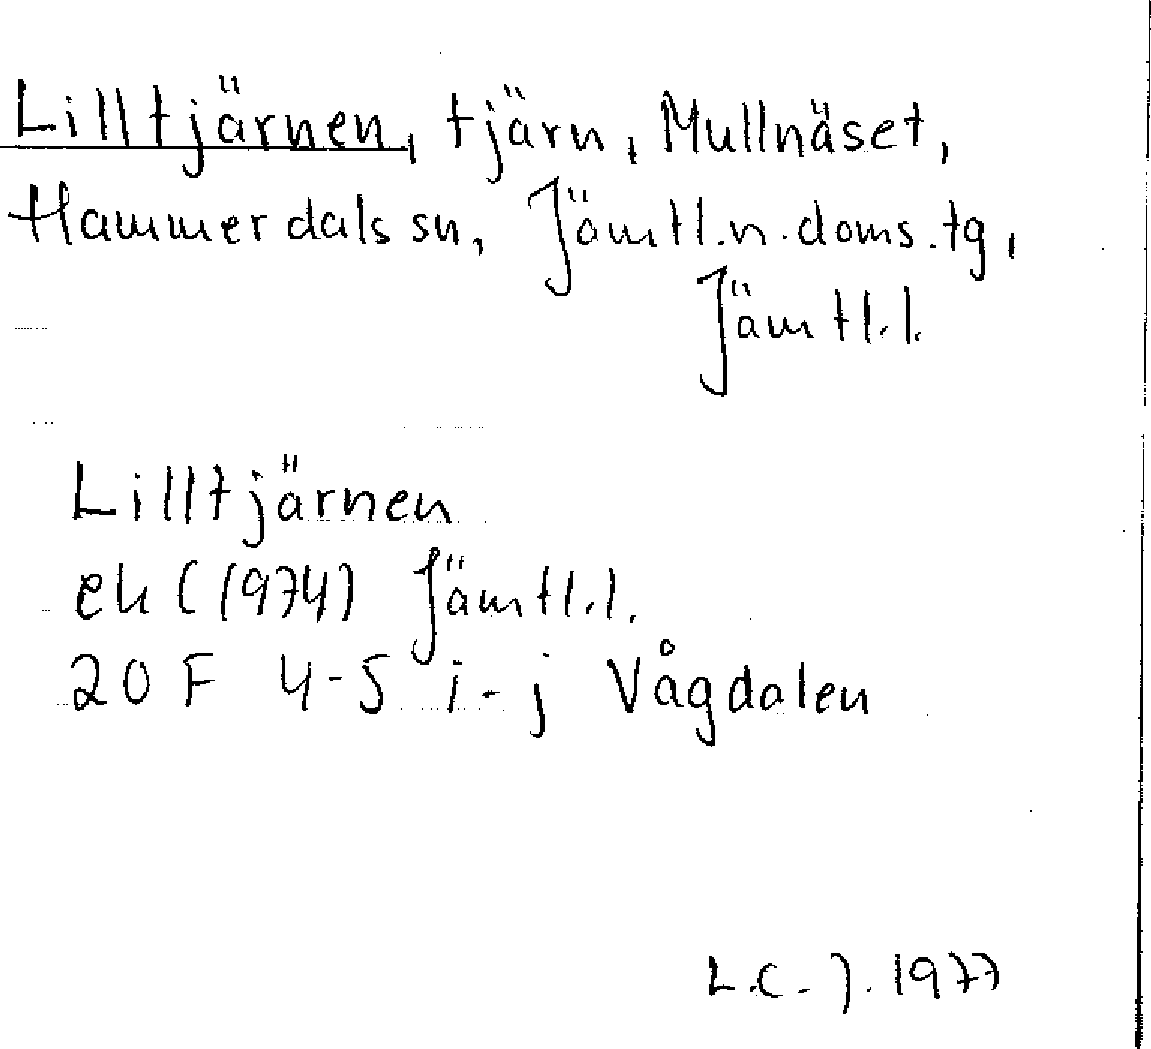 Lilltjärnen, tjärn, Mullnäset,
Hammerdals sn, Jämtl.n.doms.tg,
Jämtl.l.
Lilltjärnen
ek (1974) Jämtl.l.
20 F 4-5 i-j Vågdalen
L.C.J. 1977